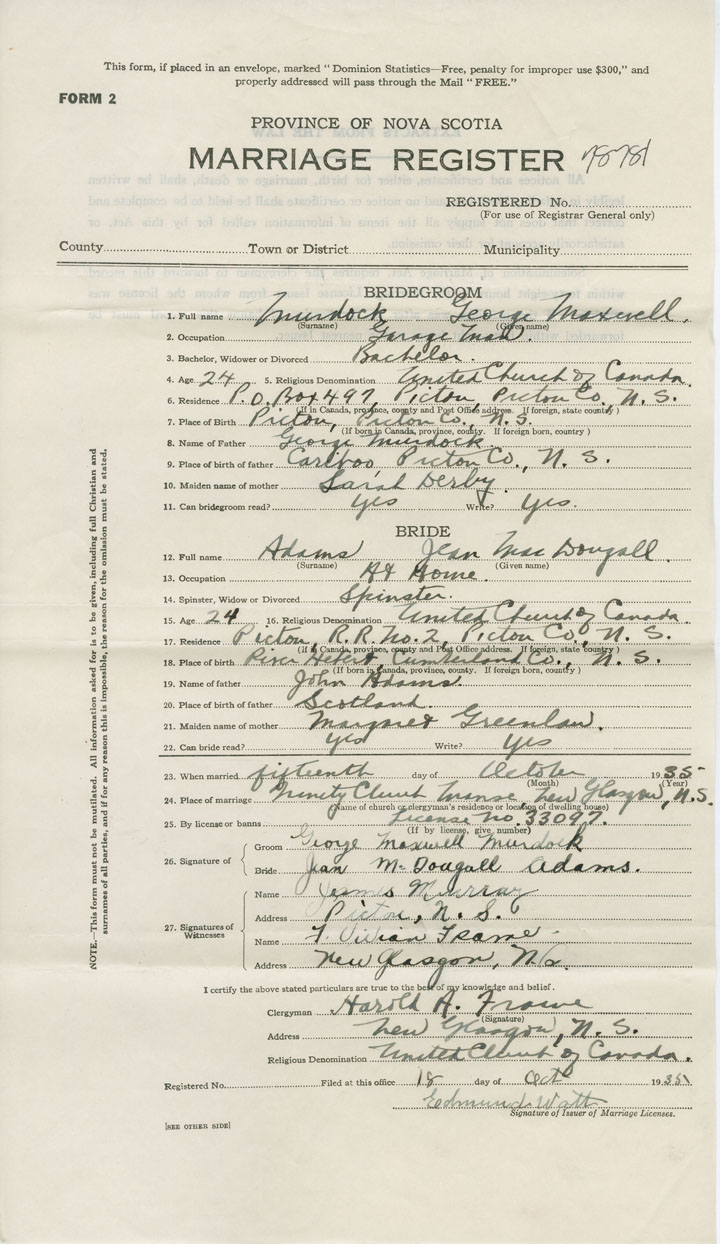 This form, if placed in an envelope, marked "Dominion Statistics—Free, penalty for improper use $300," and
properly addressed will pass through the Mail "FREE."
FORM 2
PROVINCE OF NOVA SCOTIA
MARRIAGE REGISTER
REGISTERED No.
(For use of Registrar General only)
County Town or District Municipality
BRIDEGROOM
1. Full name Murdock George Maxwell.
(Surname) (Given name)
2. Occupation Garage Man.
3. Bachelor, Widower or Divorced Bachelor.
4. Age 24 5. Religious Denomination United Church of Canada.
6. Residence P.O. Box 497, Pictou, Pictou Co., N. S.
(If in Canada, province, county and Post Office address. If foreign, state country)
7. Place of Birth Pictou, Pictou Co., N. S.
(If born in Canada, province, county. If foreign born, country)
8. Name of Father George Murdock
9. Place of birth of father Cariboo, Pictou Co., N. S.
10. Maiden name of mother Sarah Derby.
11. Can bridegroom read? Yes Write? Yes.
BRIDE
12. Full name Adams Jean MacDougall.
(Surname) (Given name)
13. Occupation At Home.
14. Spinster, Widow or Divorced Spinster.
15. Age 24 16. Religious Denomination United Church of Canada.
17. Residence Pictou, R.R. No. 2, Pictou Co., N. S.
(If in Canada, province, county and Post Office address. If foreign, state country)
18. Place of birth River Hebert, Cumberland Co., N. S.
(If born in Canada, province, county. If foreign born, country)
19. Name of father John Adams.
20. Place of birth of father Scotland.
21. Maiden name of mother Margaret Greenlaw.
22. Can bride read? Yes Write? Yes
23. When married fifteenth day of October 1935.
(Month) (Year)
24. Place of marriage Trinity Church Manse New Glasgow, N.S.
(Name of church or clergyman's residence or location of dwelling house)
25. By license or banns License No. 33097.
(If by license, give number)
26. Signature of
Groom George Maxwell Murdock
Bride Jean McDougall Adams.
27. Signatures of Witnesses
Name James Murray
Address Pictou, N. S.
Name F. Vivian Frame
Address New Glasgow, N.S.
I certify the above stated particulars are true to the best of my knowledge and belief.
Clergyman Harold A. Frame
(Signature)
Address New Glasgow, N. S.
Religious Denomination United Church of Canada.
Registered No. Filed at this office 18 day of Oct 1935
Edmund Watt
Signature of Issuer of Marriage Licenses.
[SEE OTHER SIDE]
NOTE.—This form must not be mutilated. All information asked for is to be given, including full Christian and
surnames of all parties, and if for any reason this is impossible, the reason for the omission must be stated.